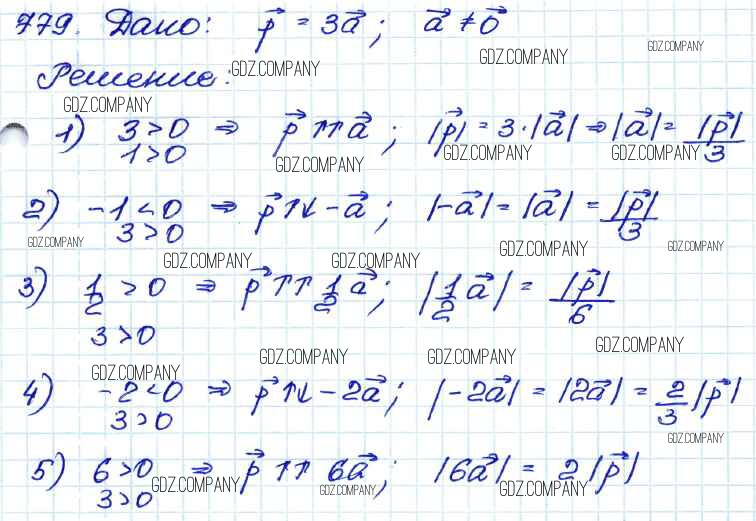 779. Дано: p⃗ = 3a⃗; a⃗ ≠ 0⃗
GDZ.COMPANY
GDZ.COMPANY
Решение:
GDZ.COMPANY
GDZ.COMPANY
1) 3 > 0 ⇒ p⃗ ↑↑ a⃗; |p⃗| = 3·|a⃗| ⇒ |a⃗| = |p⃗|/3
1 > 0
GDZ.COMPANY GDZ.COMPANY GDZ.COMPANY
2) -1 < 0 ⇒ p⃗ ↑↓ -a⃗; |-a⃗| = |a⃗| = |p⃗|/3
3 > 0
GDZ.COMPANY GDZ.COMPANY GDZ.COMPANY
GDZ.COMPANY GDZ.COMPANY
3) 1/2 > 0 ⇒ p⃗ ↑↑ 1/2 a⃗; |1/2 a⃗| = |p⃗|/6
3 > 0
GDZ.COMPANY
GDZ.COMPANY GDZ.COMPANY
GDZ.COMPANY
4) -2 < 0 ⇒ p⃗ ↑↓ -2a⃗; |-2a⃗| = |2a⃗| = 2/3 |p⃗|
3 > 0
GDZ.COMPANY
5) 6 > 0 ⇒ p⃗ ↑↑ 6a⃗; |6a⃗| = 2|p⃗|
3 > 0
GDZ.COMPANY GDZ.COMPANY GDZ.COMPANY